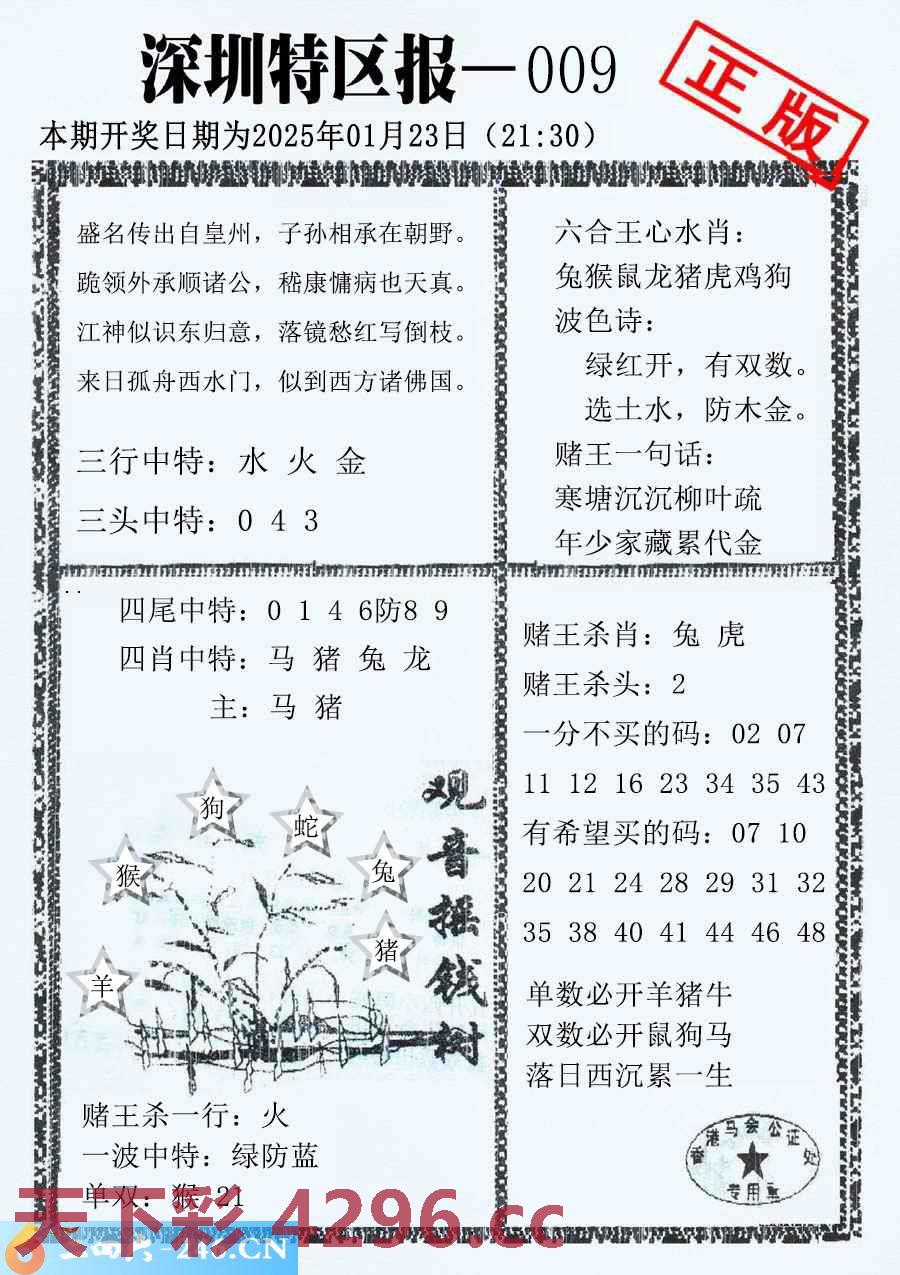 深圳特区报—009
正版
本期开奖日期为2025年01月23日（21:30）
盛名传出自皇州，子孙相承在朝野。
跪领外承顺诸公，嵇康慵病也天真。
江神似识东归意，落镜愁红写倒枝。
来日孤舟西水门，似到西方诸佛国。
三行中特：水 火 金
三头中特：0 4 3
六合王心水肖：
兔猴鼠龙猪虎鸡狗
波色诗：
绿红开，有双数。
选土水，防木金。
赌王一句话：
寒塘沉沉柳叶疏
年少家藏累代金
四尾中特：0 1 4 6防8 9
四肖中特：马 猪 兔 龙
主：马 猪
狗
蛇
猴
兔
猪
羊
观音摇钱树
赌王杀一行：火
一波中特：绿防蓝
单双：猴 21
赌王杀肖：兔 虎
赌王杀头：2
一分不买的码：02 07
11 12 16 23 34 35 43
有希望买的码：07 10
20 21 24 28 29 31 32
35 38 40 41 44 46 48
单数必开羊猪牛
双数必开鼠狗马
落日西沉累一生
香港马会公证处
专用章
天下彩 4296.cc
246.CN